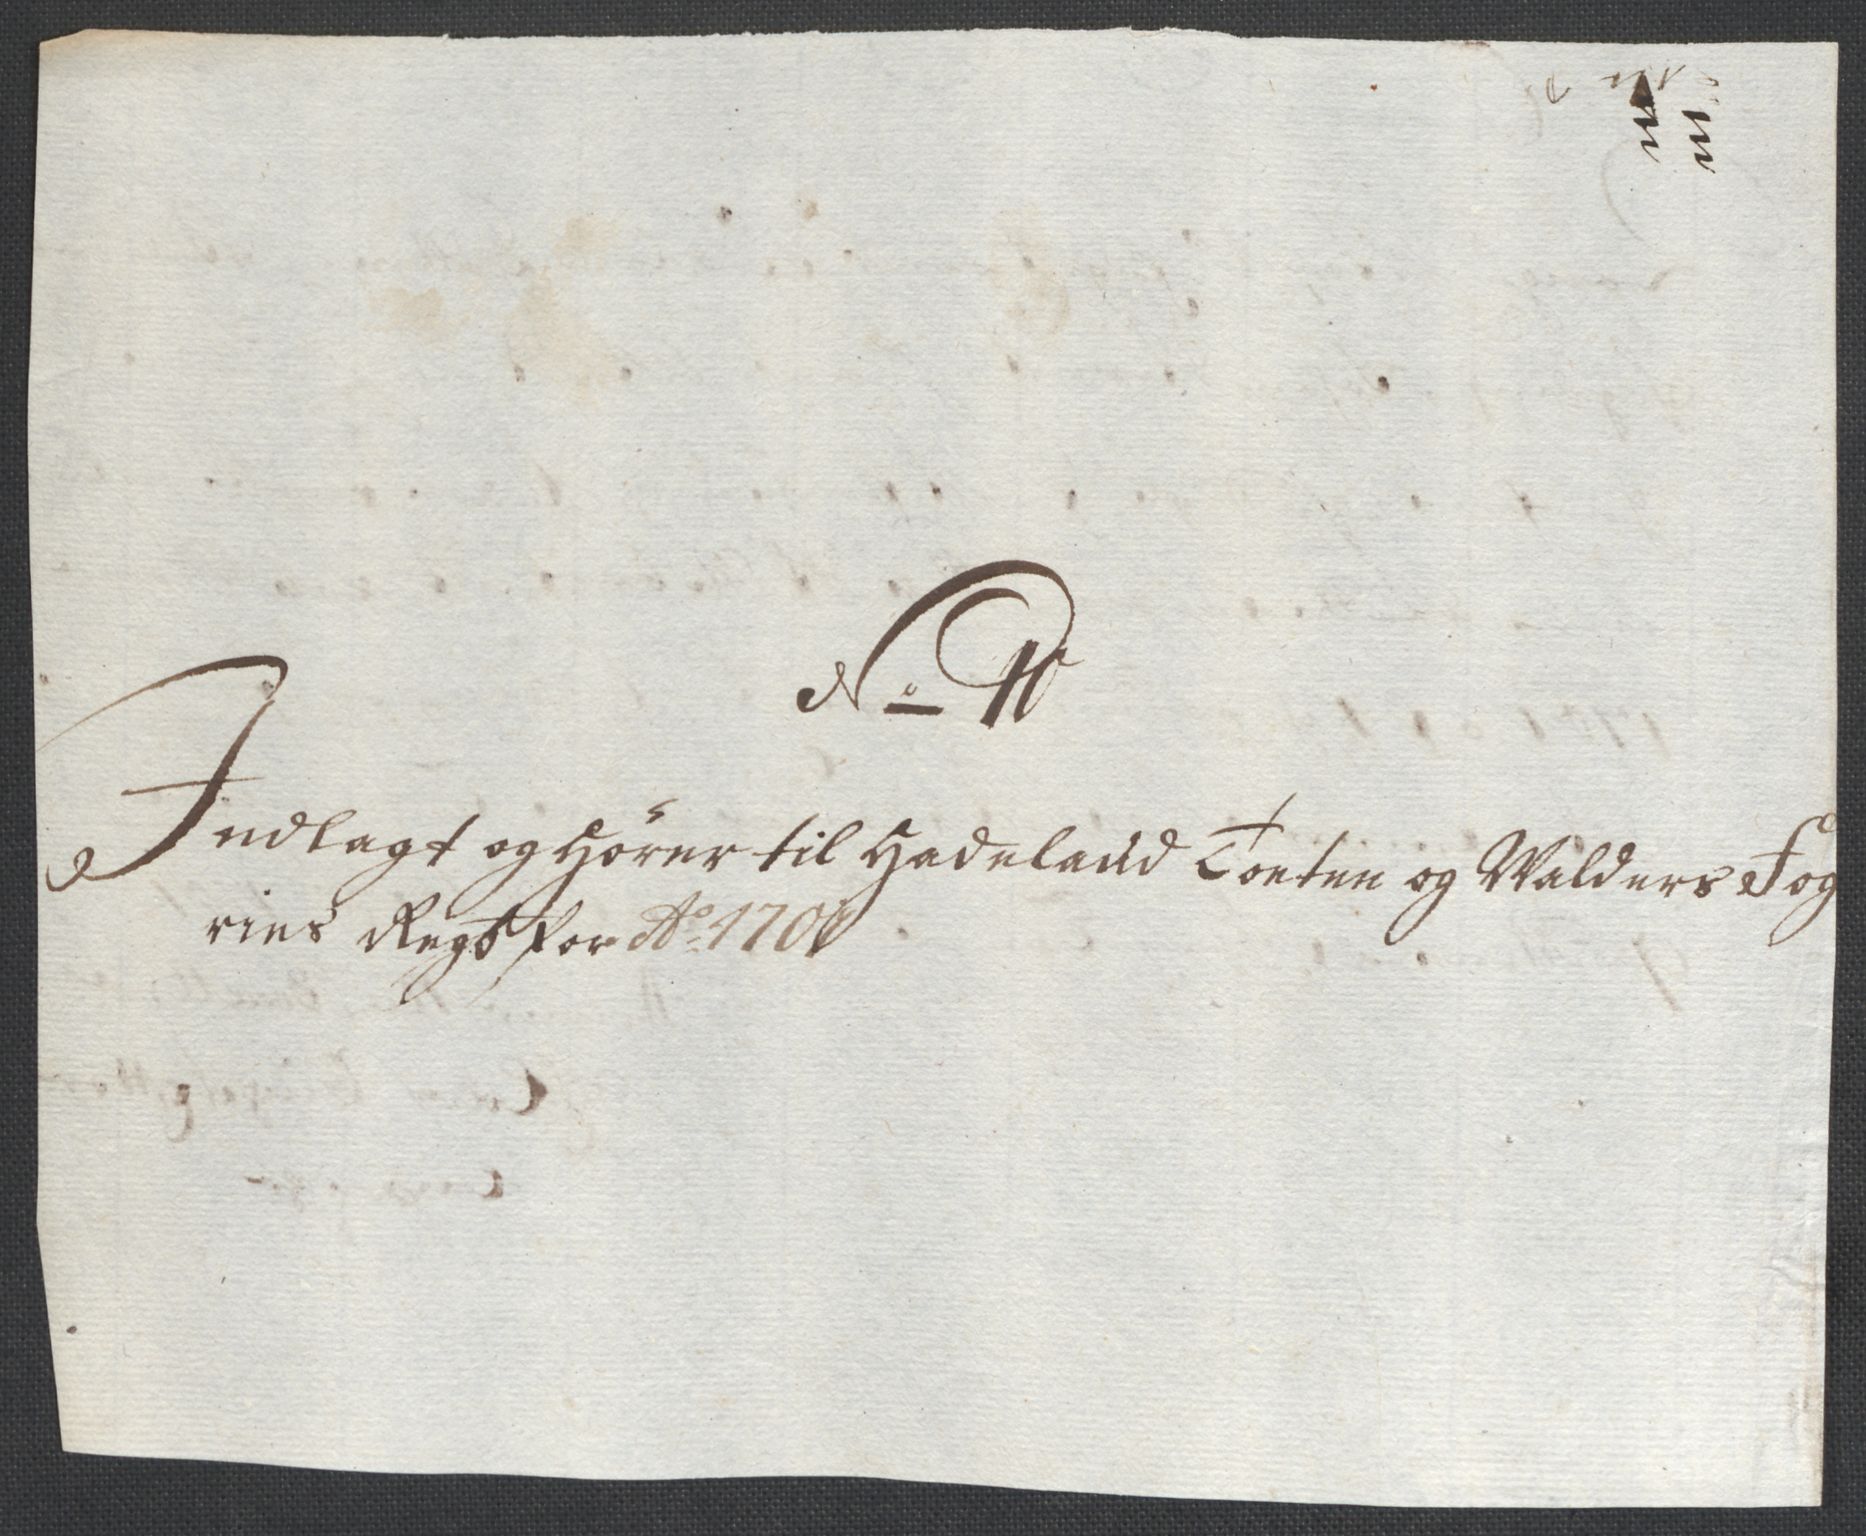 No
Indlagt og Hörer til Hadeland Toeten og Walders Fog
ries Regsb for Ao 170